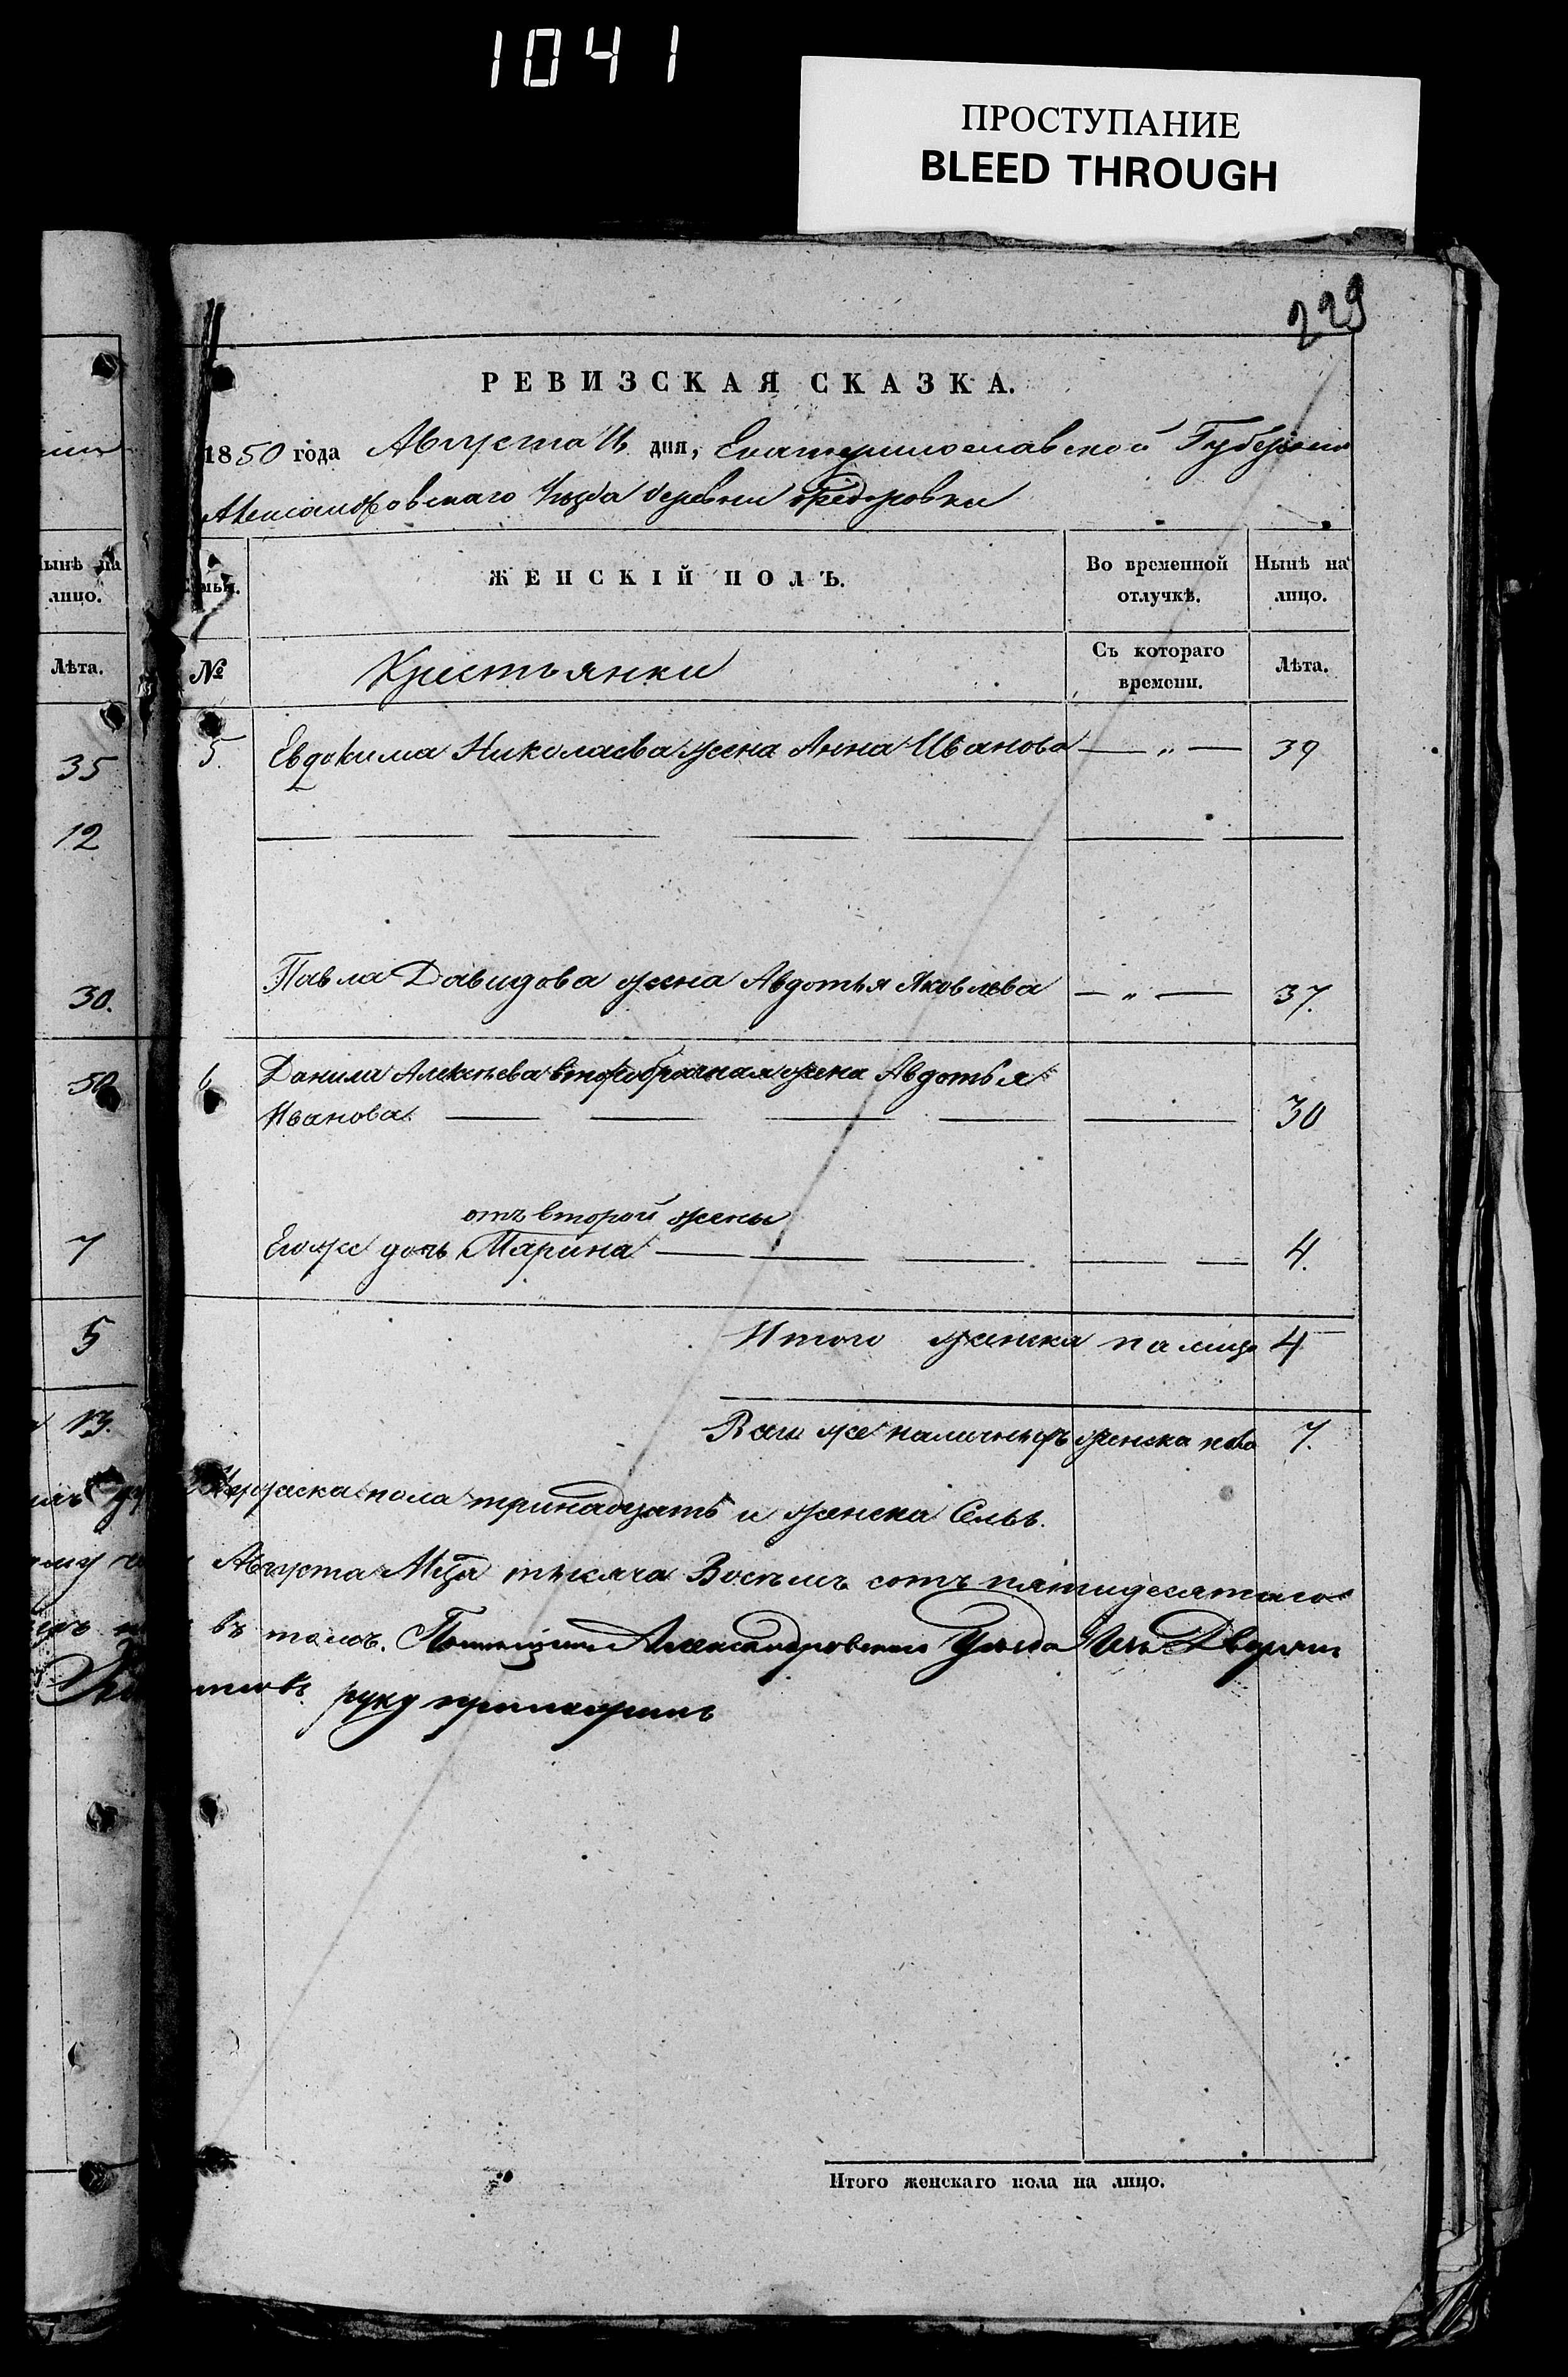 1041
ПРОСТУПАНИЕ
BLEED THROUGH
229
РЕВИЗСКАЯ СКАЗКА.
1850 года Августа дня, Екатеринославской Губернии
Александровскаго Уѣзда деревни Федоровки
Нынѣ на
лицо.
Лѣта.
35
12
30.
50
7
5
13.
ЖЕНСКІЙ ПОЛЪ.
Во временной
отлучкѣ.
Нынѣ на
лицо.
№
Крестьянки
Съ котораго
времени.
Лѣта.
5. Евдокима Николаева жена Анна Иванова — „ — 39
Павла Давидова жена Авдотья Яковлева — „ — 37.
6 Данила Алексѣева второбрачная жена Авдотья
Иванова 30
отъ второй жены
Егоже дочь Марина 4.
Итого женска на лицо 4
Всѣхъ же наличныхъ женска пола 7.
Мужеска пола тринадцать и женска Семь.
Августа Мца тысяча Восемь сотъ пятидесятаго
въ томъ. Помѣщикъ Александровскаго Уѣзда Изъ Дворянъ
руку приложилъ
Итого женскаго пола на лицо.